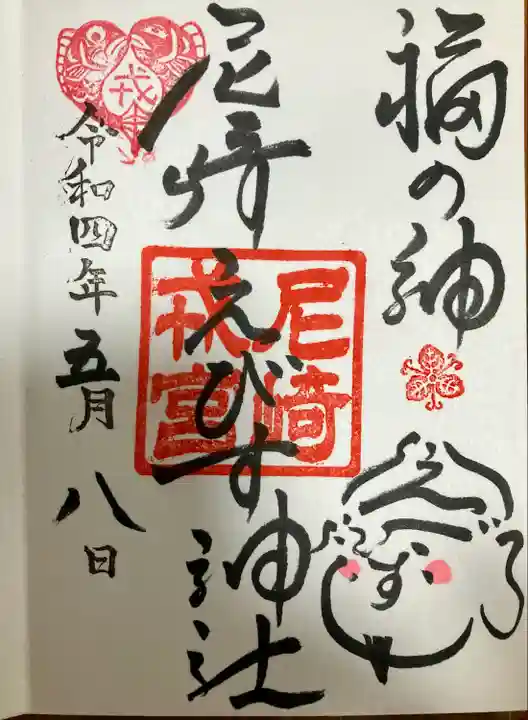 福の神
えびす
尼崎えびす神社
尼崎
戎宮
戎
令和四年五月八日